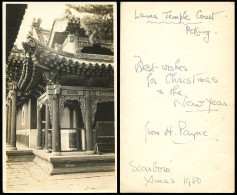 Lama Temple Court
Peking
Best wishes
for Christmas
& the
New Year
from H. Payne.
Scarboro
Xmas 1930